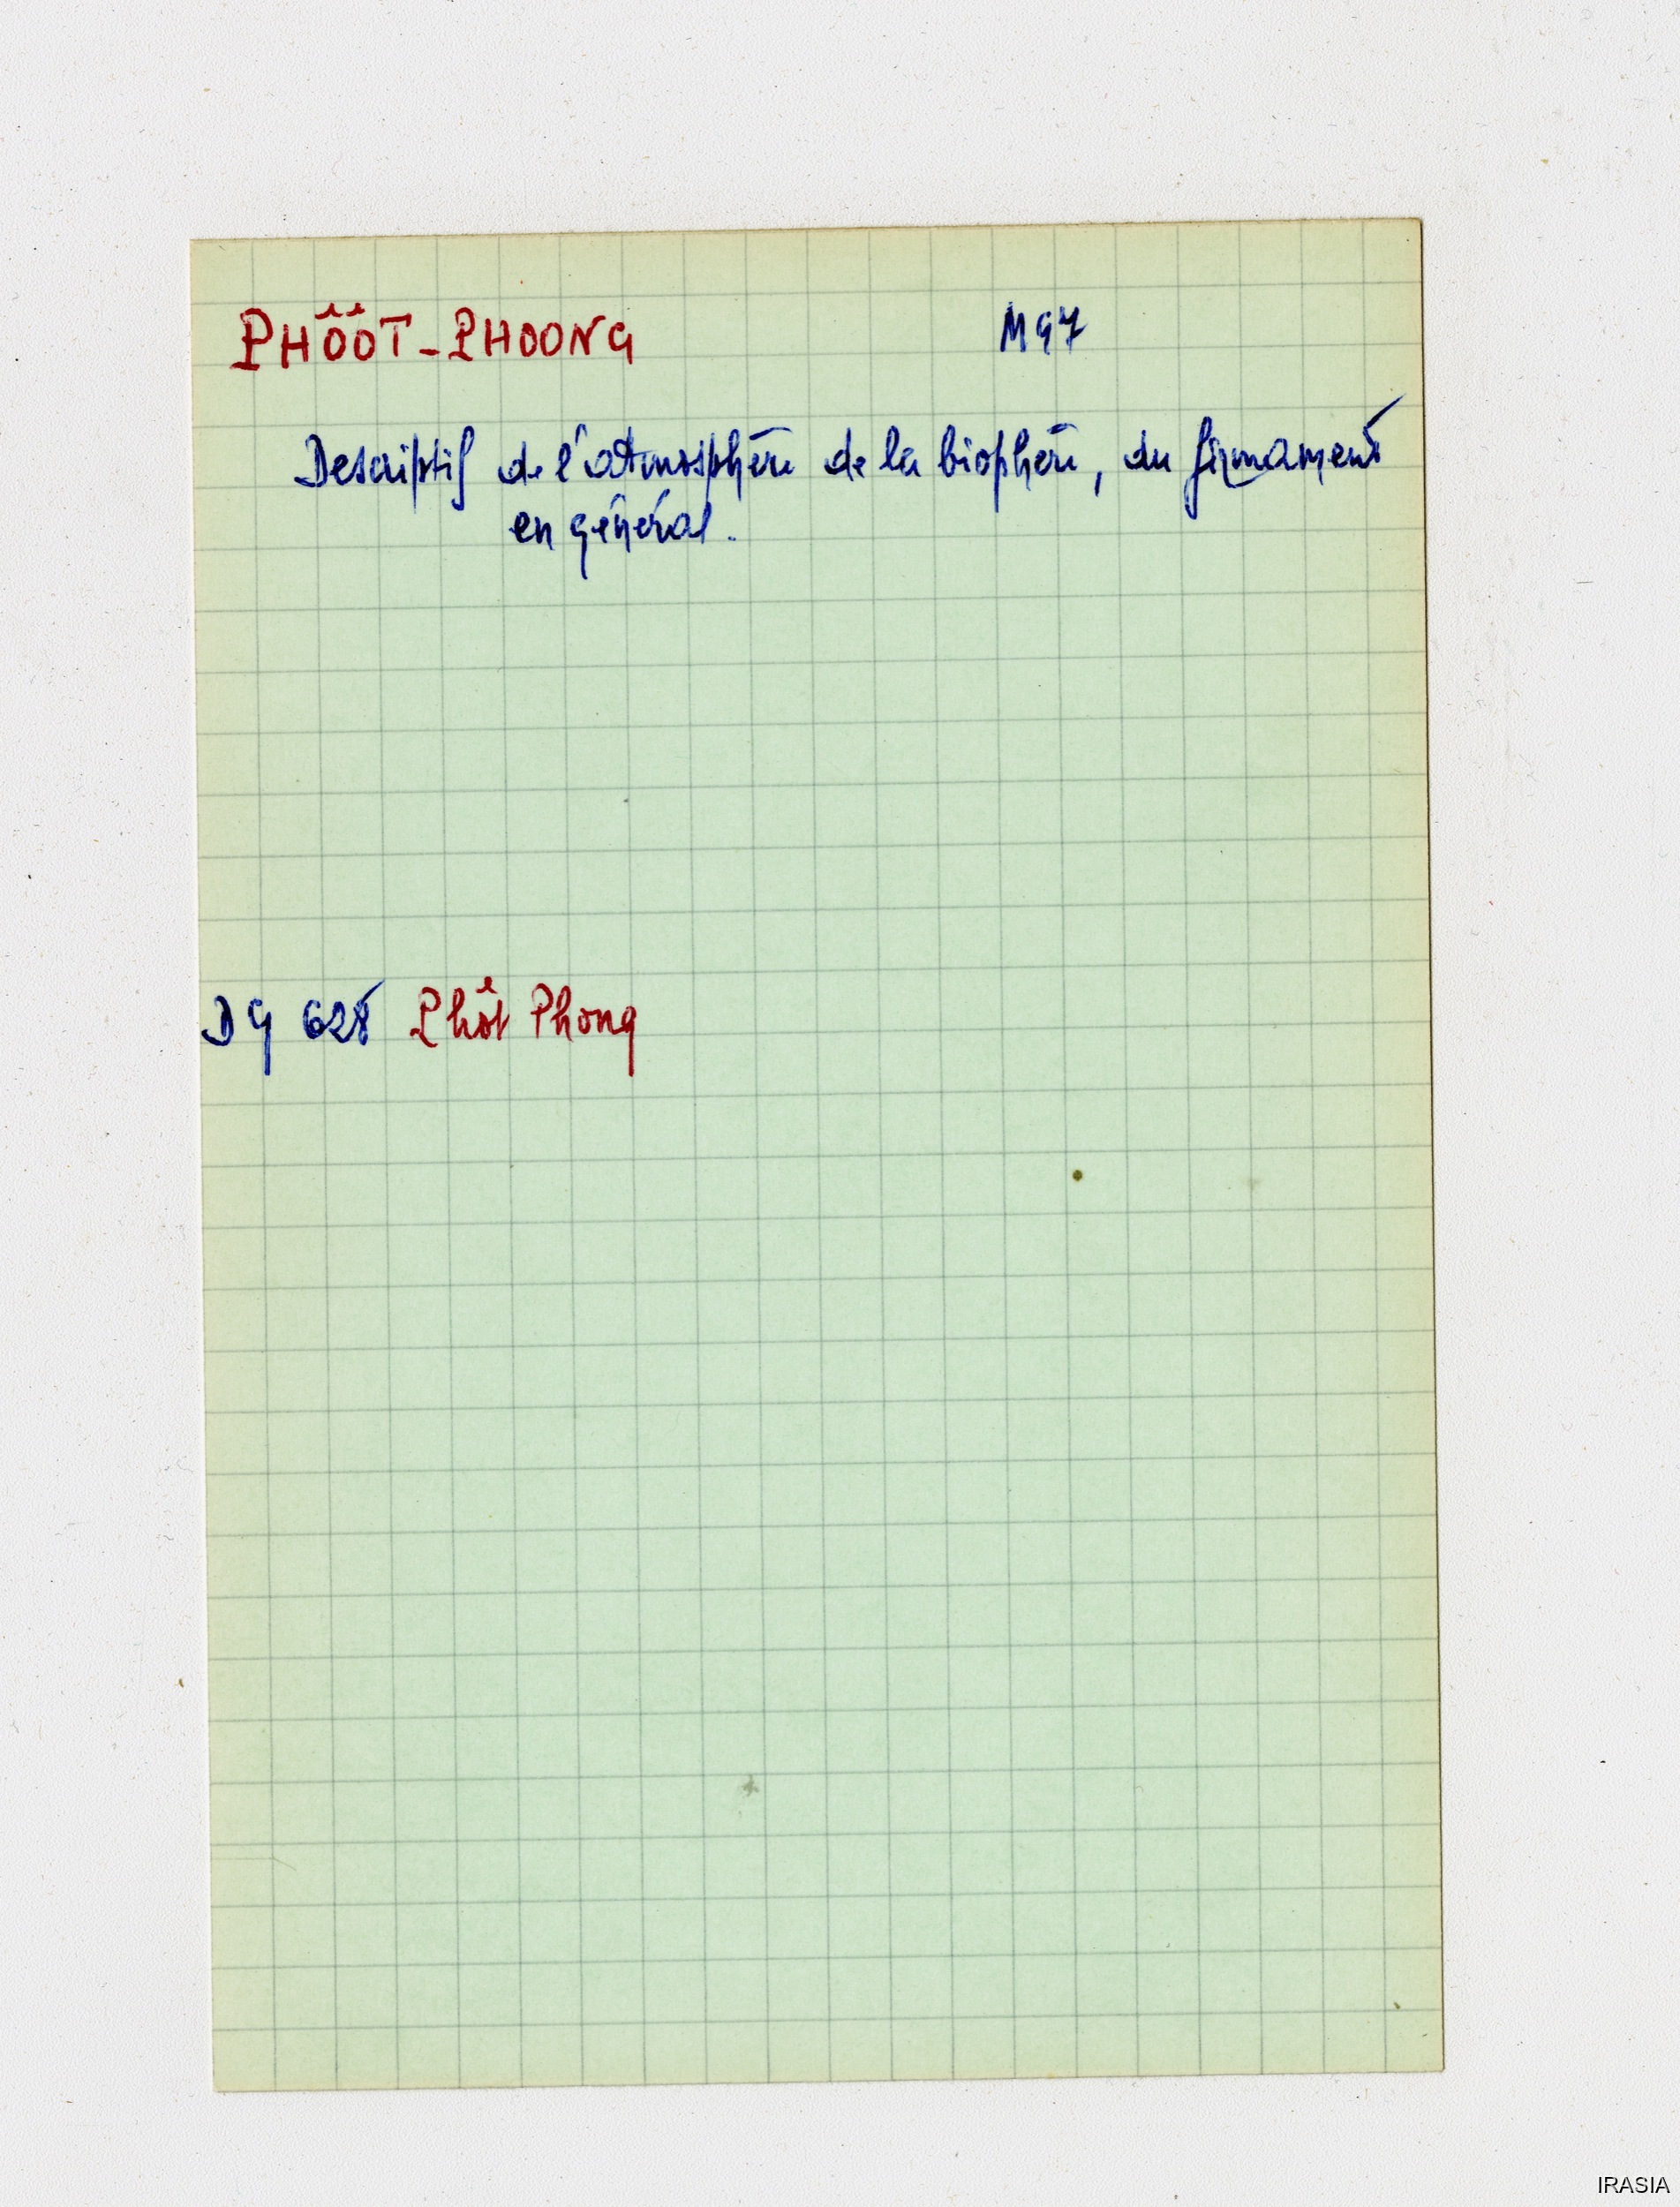 PHÔÔT-PHOONG M97
Descriptif de l'atmosphère de la biophère, du firmament
en général.
DG 628 Phôt Phong
IRASIA